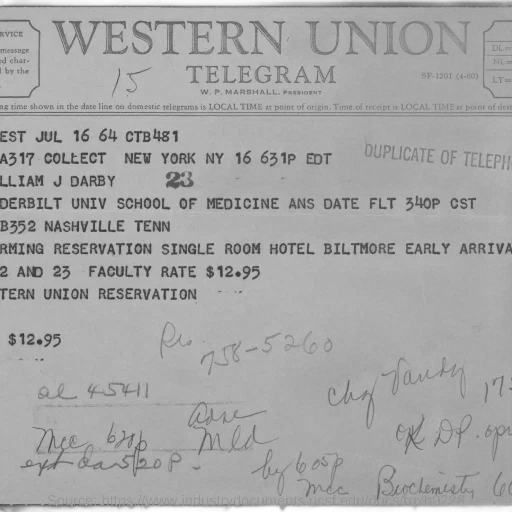 RVICE
WESTERN UNION
message
ed char-
l by the
DL=
NL=
LT=
15
TELEGRAM
SF-1201 (4-60)
W. P. MARSHALL, PRESIDENT
ng time shown in the date line on domestic telegrams is LOCAL TIME at point of origin. Time of receipt is LOCAL TIME at point of dest
EST JUL 16 64 CTB481
A317 COLLECT NEW YORK NY 16 631P EDT
DUPLICATE OF TELEPH
LLIAM J DARBY 23
DERBILT UNIV SCHOOL OF MEDICINE ANS DATE FLT 340P CST
B352 NASHVILLE TENN
RMING RESERVATION SINGLE ROOM HOTEL BILTMORE EARLY ARRIVA
2 AND 23 FACULTY RATE $12.95
TERN UNION RESERVATION
$12.95
758-5260
al 45411
chg Vandy 175
Mcc 620p Mld
OK DP. opr
ext 5/20P.
by 605p
mcc Biochemistry 60
Source: https://www.industrydocuments.ucsf.edu/docs/